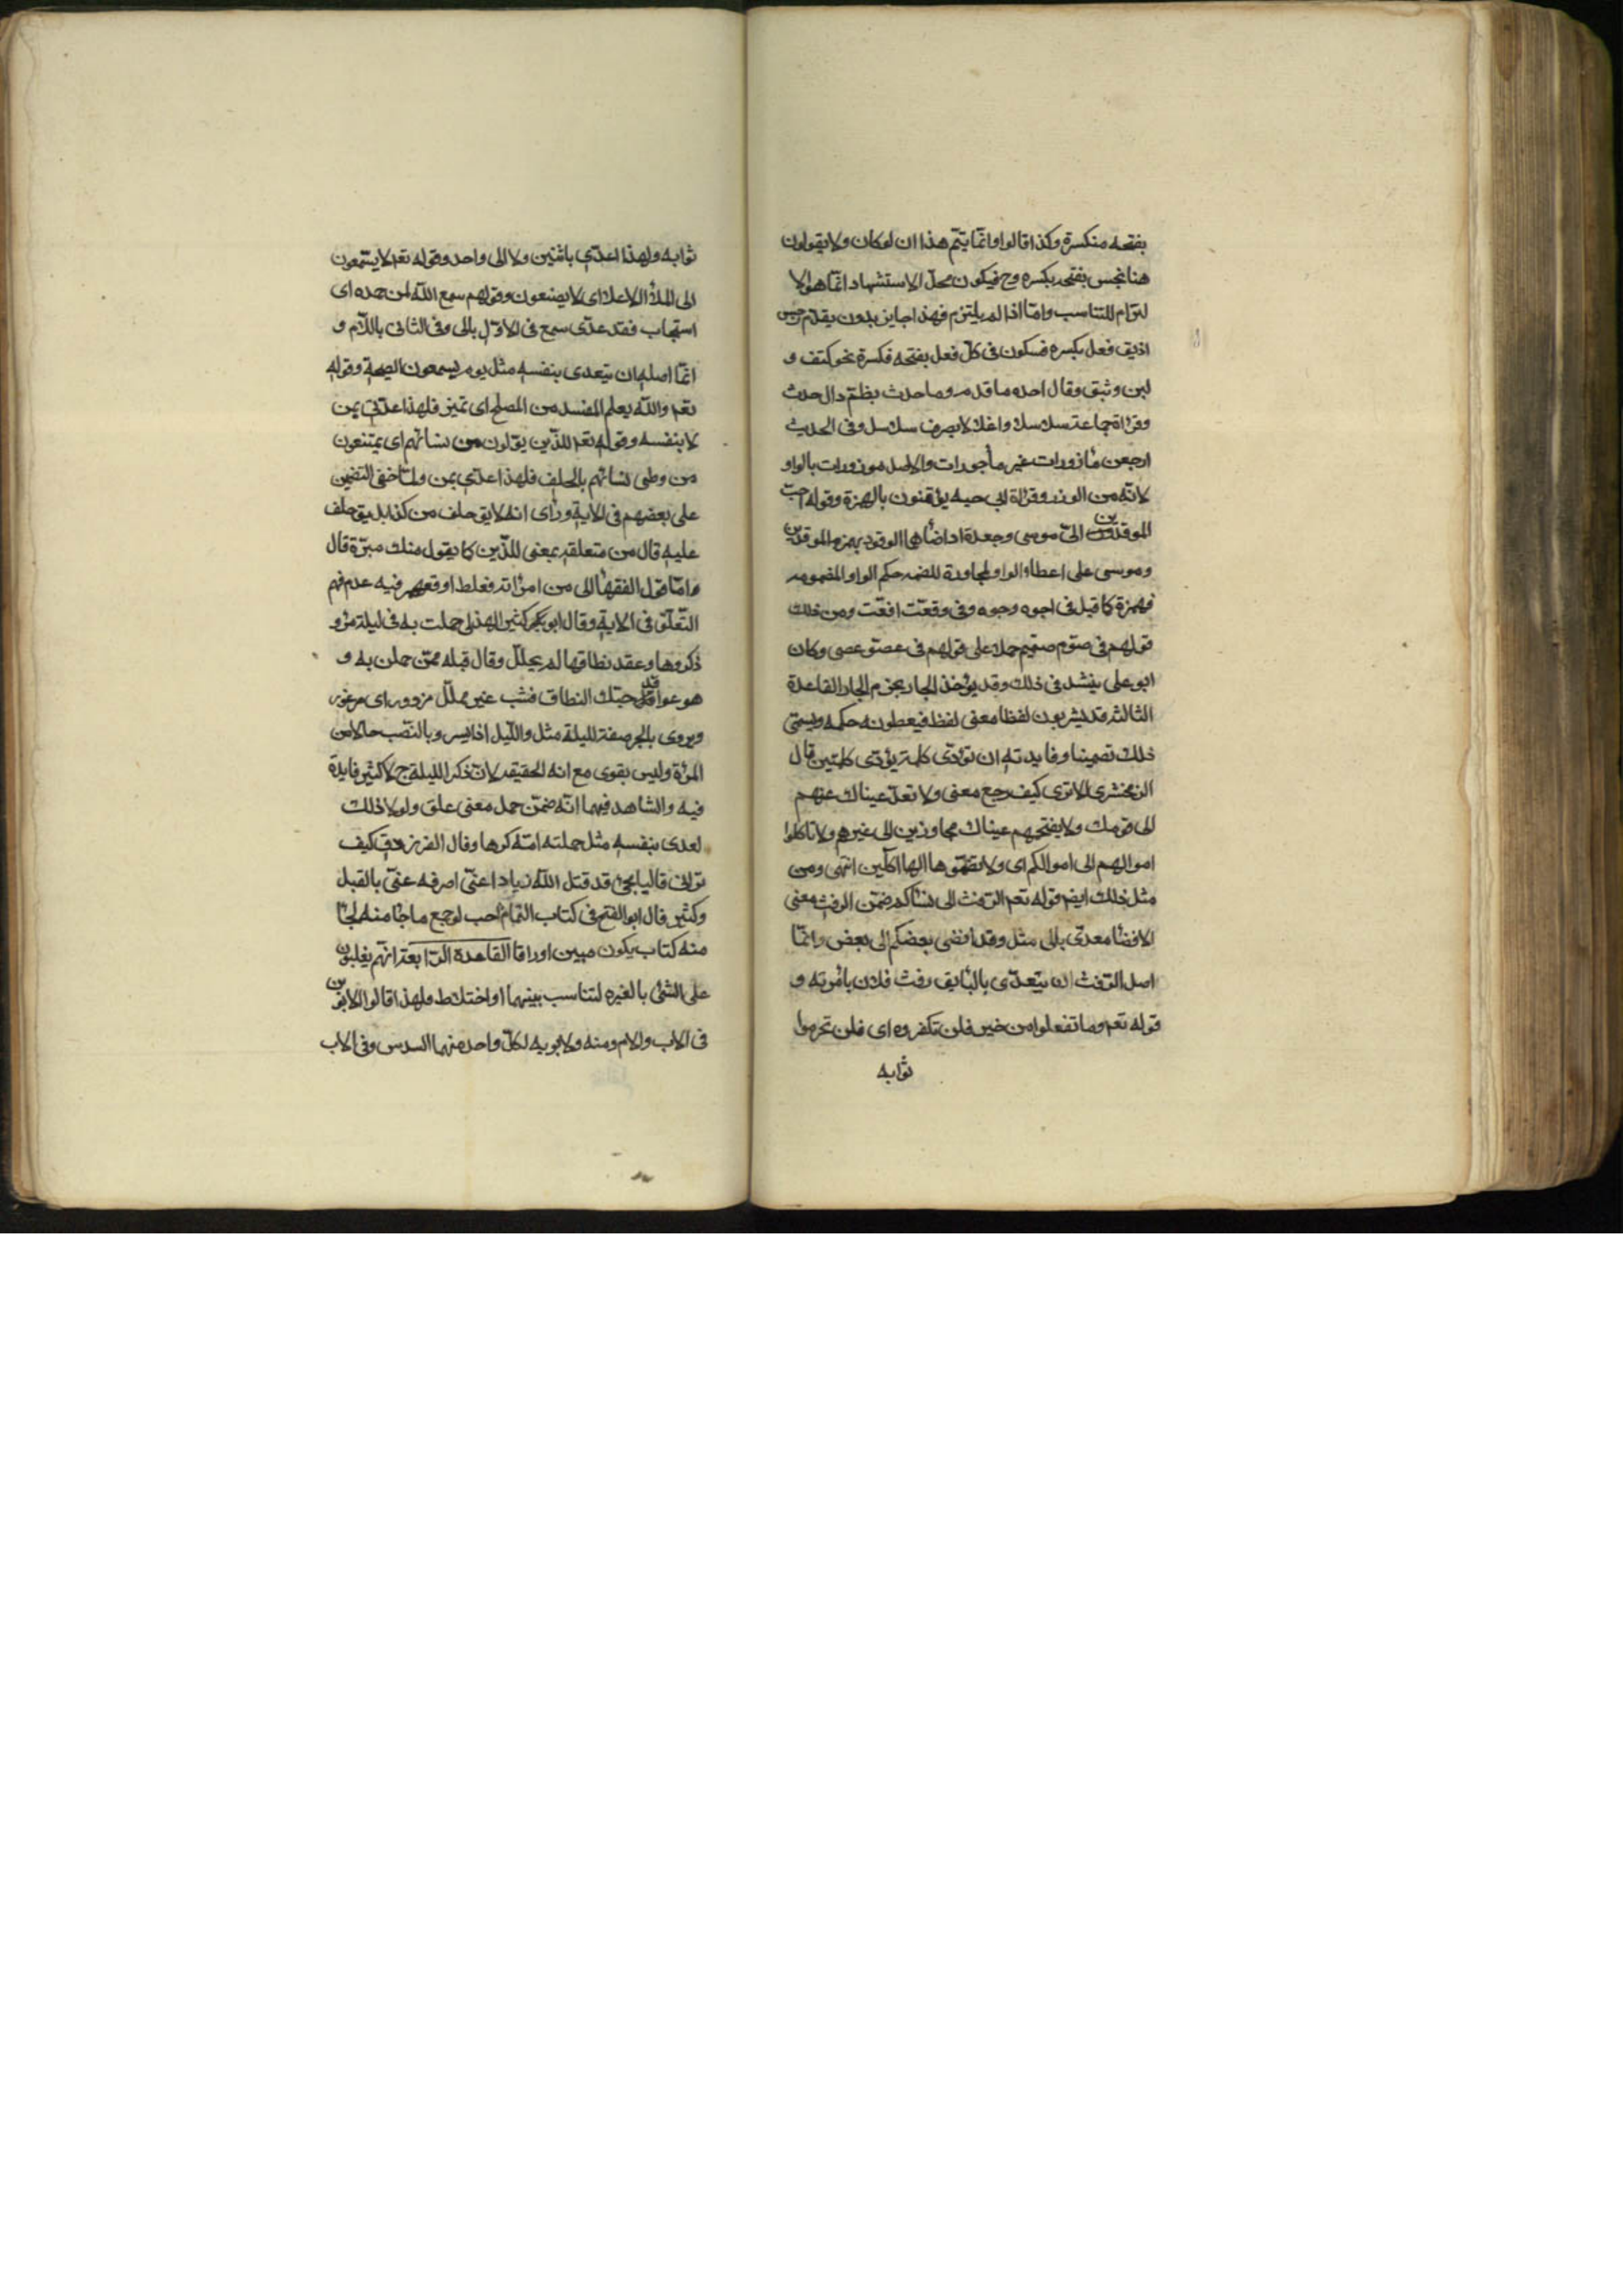 بفتحه منكسرة وكذا قالوا وانما يتم هذا ان لو كان ولا يقولون
هنا نجس بفتحه بكسره وح فيكون محل الاستشهاد انما هو الا
لتزام للتناسب واما اذا لم يلتزم فهذا جايز بدون تقدم رجس
اذ يق فعل بكسره فسكون فى كل فعل بفتحه فكسرة نحو كتف و
لبن وثبق وقال احده ما قدم وما حدث بظم دال حدث
وقراة جماعة سلاسلا واغلالا بصرف سلاسل وفى الحديث
ارجعن مأزورات غير مأجورات والاصل موزورات بالواو
لانه من الوزر وقراة ابى حيه يؤقنون بالهمزة وقوله احب
الموقدين الىّ موسى وجعدة اذا ضاهما الوقود بهمز الموقدين
وموسى على اعطا الواو المجاورة للضمه حكم الواو المضمومه
فهمزة كما قيل فى اجوه وجوه وفى وقعت اقعت ومن ذلك
قولهم فى صوّم صيّم حملا على قولهم فى عصوّ عصى وكان
ابو على ينشد فى ذلك وقد يؤخذ الجار بجرم الجار القاعدة
الثالثه قد يشربون لفظا معنى لفظ فيعطونه حكمه ويسمى
ذلك تضمينا وفايدته ان تؤدى كلمة يؤدى كلمتين قال
الزمخشرى الا ترى كيف رجع معنى ولا تعد عيناك عنهم
الى قومك ولا يقتحهم عيناك مجاوزين الى غيرهم ولا تاكلوا
اموالهم الى اموالكم اى ولا تضموها اليها اكلين انتهى ومن
مثل ذلك ايضم قوله تعم الرفث الى نساكم ضمن الرفث معنى
الافضا معدى بالى مثل وقد افضى بعضكم الى بعض وانما
اصل الرفث ان يتعدى بالبا يق رفث فلان بامرته و
قوله تعم وما تفعلوا من خير فلن تكفروه اى فلن تحرموا
ثوابه
ثوابه ولهذا عدّى باثنين ولا الى واحد وقوله تعم لا يسمعون
الى الملأ الاعلا اى لا يصغون وقولهم سمع الله لمن حمده اى
استجاب فقد عدى سمع فى الاول بالى وفى الثانى باللام و
انما اصله ان يتعدى بنفسه مثل يوم يسمعون الصيحة وقوله
تعم والله يعلم المفسد من المصلح اى يميز فلهذا عدّى بمن
لا بنفسه وقوله تعم للذين يؤلون من نسائهم اى يمتنعون
من وطى نسائهم بالحلف فلهذا عدّى بمن ولما خفى التضمين
على بعضهم فى الاية وراى انه لا يق حلف من كذا بل يق حلف
عليه قال من متعلقه بمعنى للذين كما يقول منك مبرة قال
واما قول الفقها الى من امراته فغلط اوقعهم فيه عدم فهم
التعلق فى الاية وقال ابو بكر كثير الهذلى حملت به فى ليلة مزو
ذكروها وعقد نطاقها لم يحلل وقال قبله ممن حملن به و
هو عواقد حبك النطاق فشب غير مملل مزوور اى مرغور
ويروى بالجر صفة لليلة مثل والليل اذا يسر وبالنصب حالا من
المرأة وليس بقوى مع انه الحقيقه لان ذكر الليلة ح لا كثير فايدة
فيه والشاهد فيهما انه ضمن حمل معنى علق ولولا ذلك
لعدى بنفسه مثل حملته امه كرها وقال الفرزدق كيف
تران قاليا مجنى قد قتل الله زيادا عنى اى صرفه عنى بالقتل
وكثير قال ابو الفتح فى كتاب التمام احب لو جمع ما جا منه لجا
منه كتاب يكون مبين اوراقا القاعدة الرابعة انهم يغلبون
على الشئ بالغيره لتناسب بينهما او اختلاط ولهذا قالوا الابوين
فى الاب والام ومنه ولابويه لكل واحد منهما السدس وفى الاب